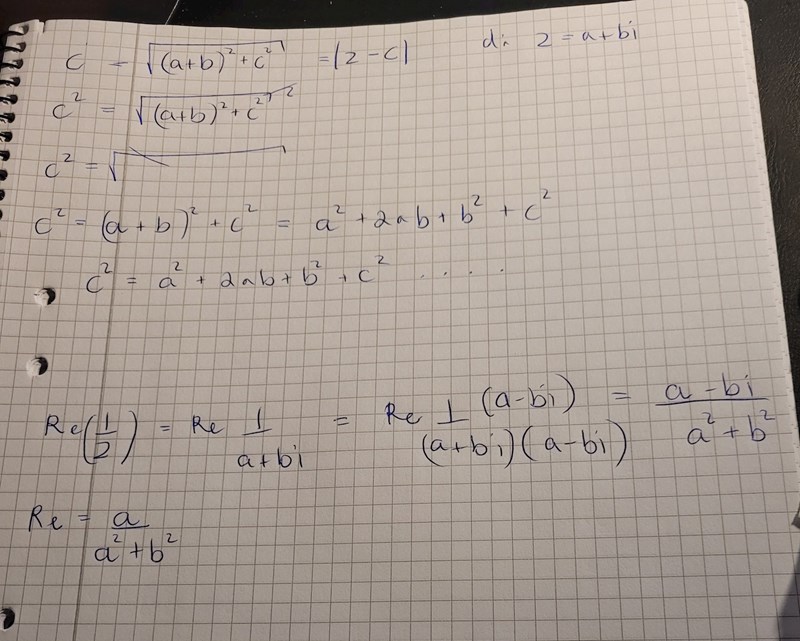 c = √(a+b)² + c² = |z - c| di z = a+bi
c² = √(a+b)² + c² ²
c² = √
c² = (a+b)² + c² = a² + 2ab + b² + c²
c² = a² + 2ab + b² + c² . . . .
Re(1/z) = Re 1/(a+bi) = Re 1 (a-bi)/(a+bi)(a-bi) = (a-bi)/(a²+b²)
Re = a/(a²+b²)